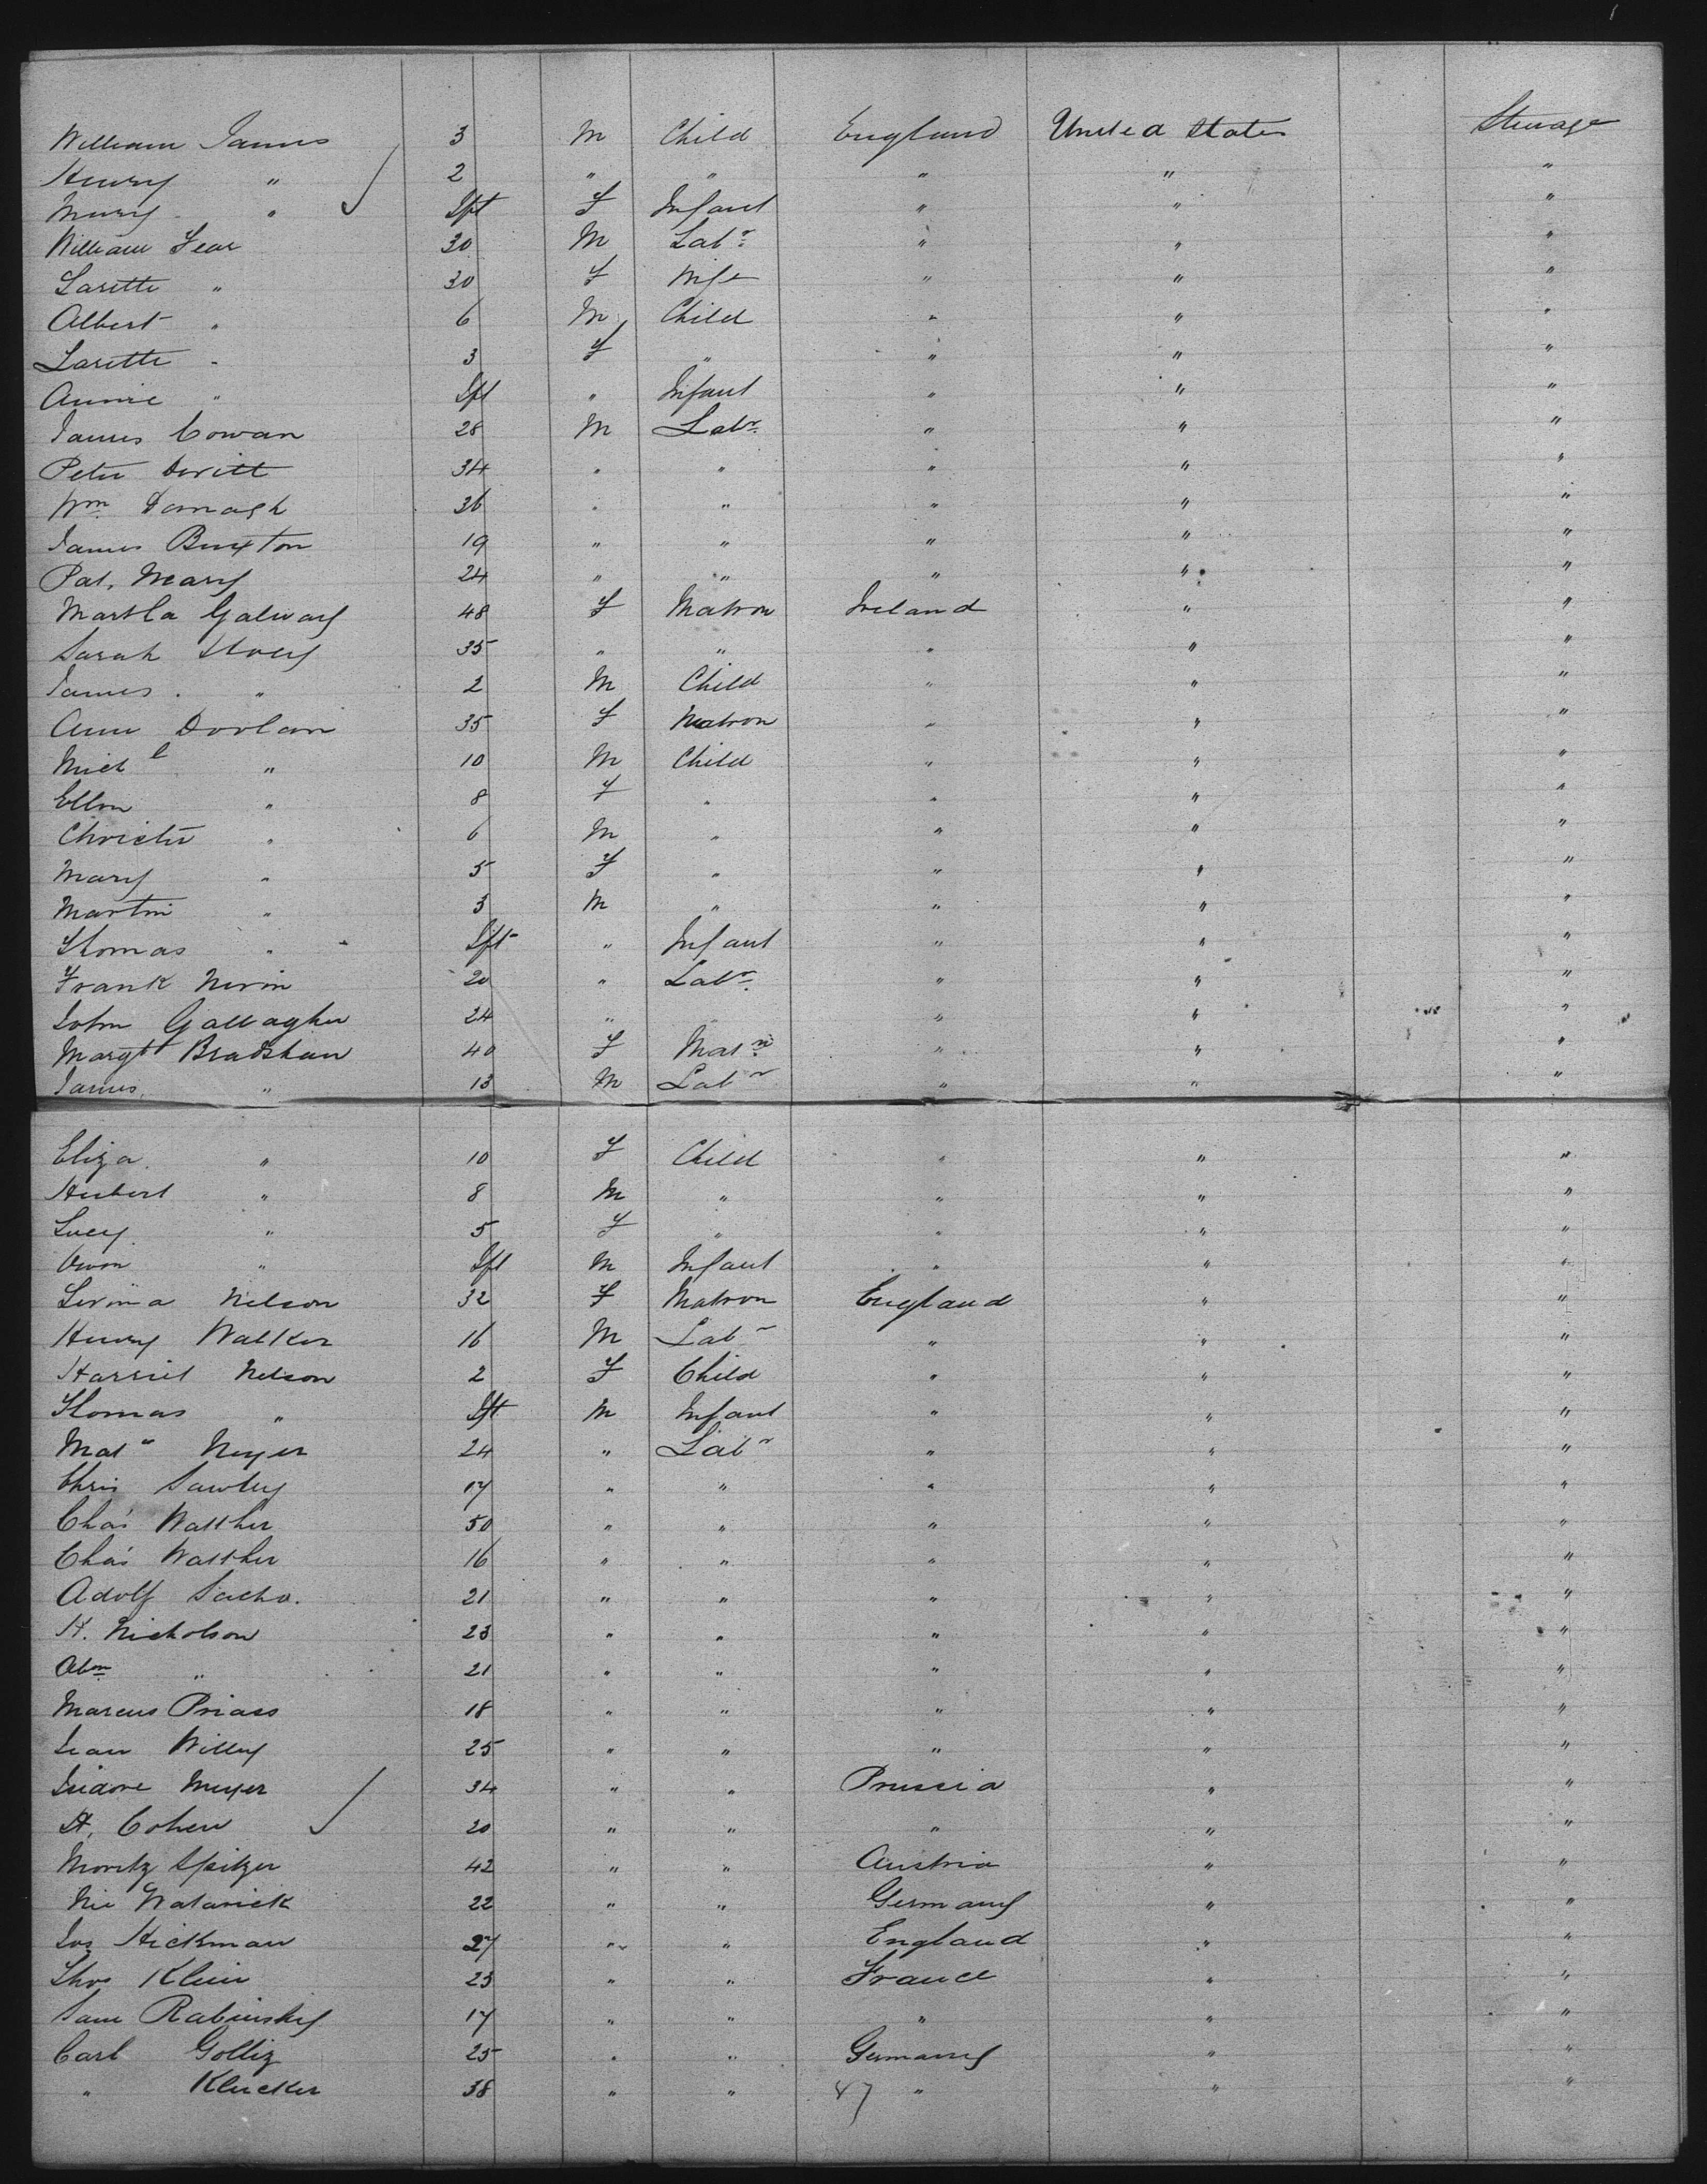 William James 3 M Child England United States Steerage
Henry " 2 " " " " "
Mary " Ift F Infant " " "
William Fear 30 M Labr " " "
Larette " 30 F Wife " " "
Albert " 6 M Child " " "
Larette " 3 F " " " "
Annie " Ift " Infant " " "
James Cowan 28 M Labr " " "
Peter Devitt 34 " " " " "
Wm Darragh 36 " " " " "
James Buxton 19 " " " " "
Pat. Neary 24 " " " " "
Martha Galway 48 F Matron Ireland " "
Sarah 35 " " " " "
James " 2 M Child " " "
Ann Doolan 35 F Matron " " "
Michl " 10 M Child " " "
Ellen " 8 F " " " "
Christr " 6 M " " " "
Mary " 5 F " " " "
Martin " 3 M " " " "
Thomas " Ift " Infant " " "
Frank Nevin 20 " Labr " " "
John Gallagher 24 " " " " "
Margt Bradshaw 40 F Matn " " "
James " 13 M Labr " " "
Eliza " 10 F Child " " "
Herbert " 8 M " " " "
Lucy " 5 F " " " "
" Ift M Infant " " "
Levina Nelson 32 F Matron England " "
Henry Walker 16 M Labr " " "
Harriet Nelson 2 F Child " " "
Thomas " Ift M Infant " " "
24 " Labr " " "
Chris Sawley 17 " " " " "
Chas Walther 50 " " " " "
Chas Walther 16 " " " " "
Adolf Sachs. 21 " " " " "
H. Nicholson 23 " " " " "
Abm " 21 " " " " "
Marcus Priass 18 " " " " "
Willey 25 " " " " "
Isidore Meyer 34 " " Prussia " "
Cohen 20 " " " " "
Moritz Spitzer 42 " " Austria " "
Nic Watarick 22 " " Germany " "
Jos Hickman 27 " " England " "
Thos Klein 23 " " France " "
Sam Rabinsky 17 " " " " "
Carl Golliz 25 " " Germany " "
" Klucker 38 " " 47 " " "